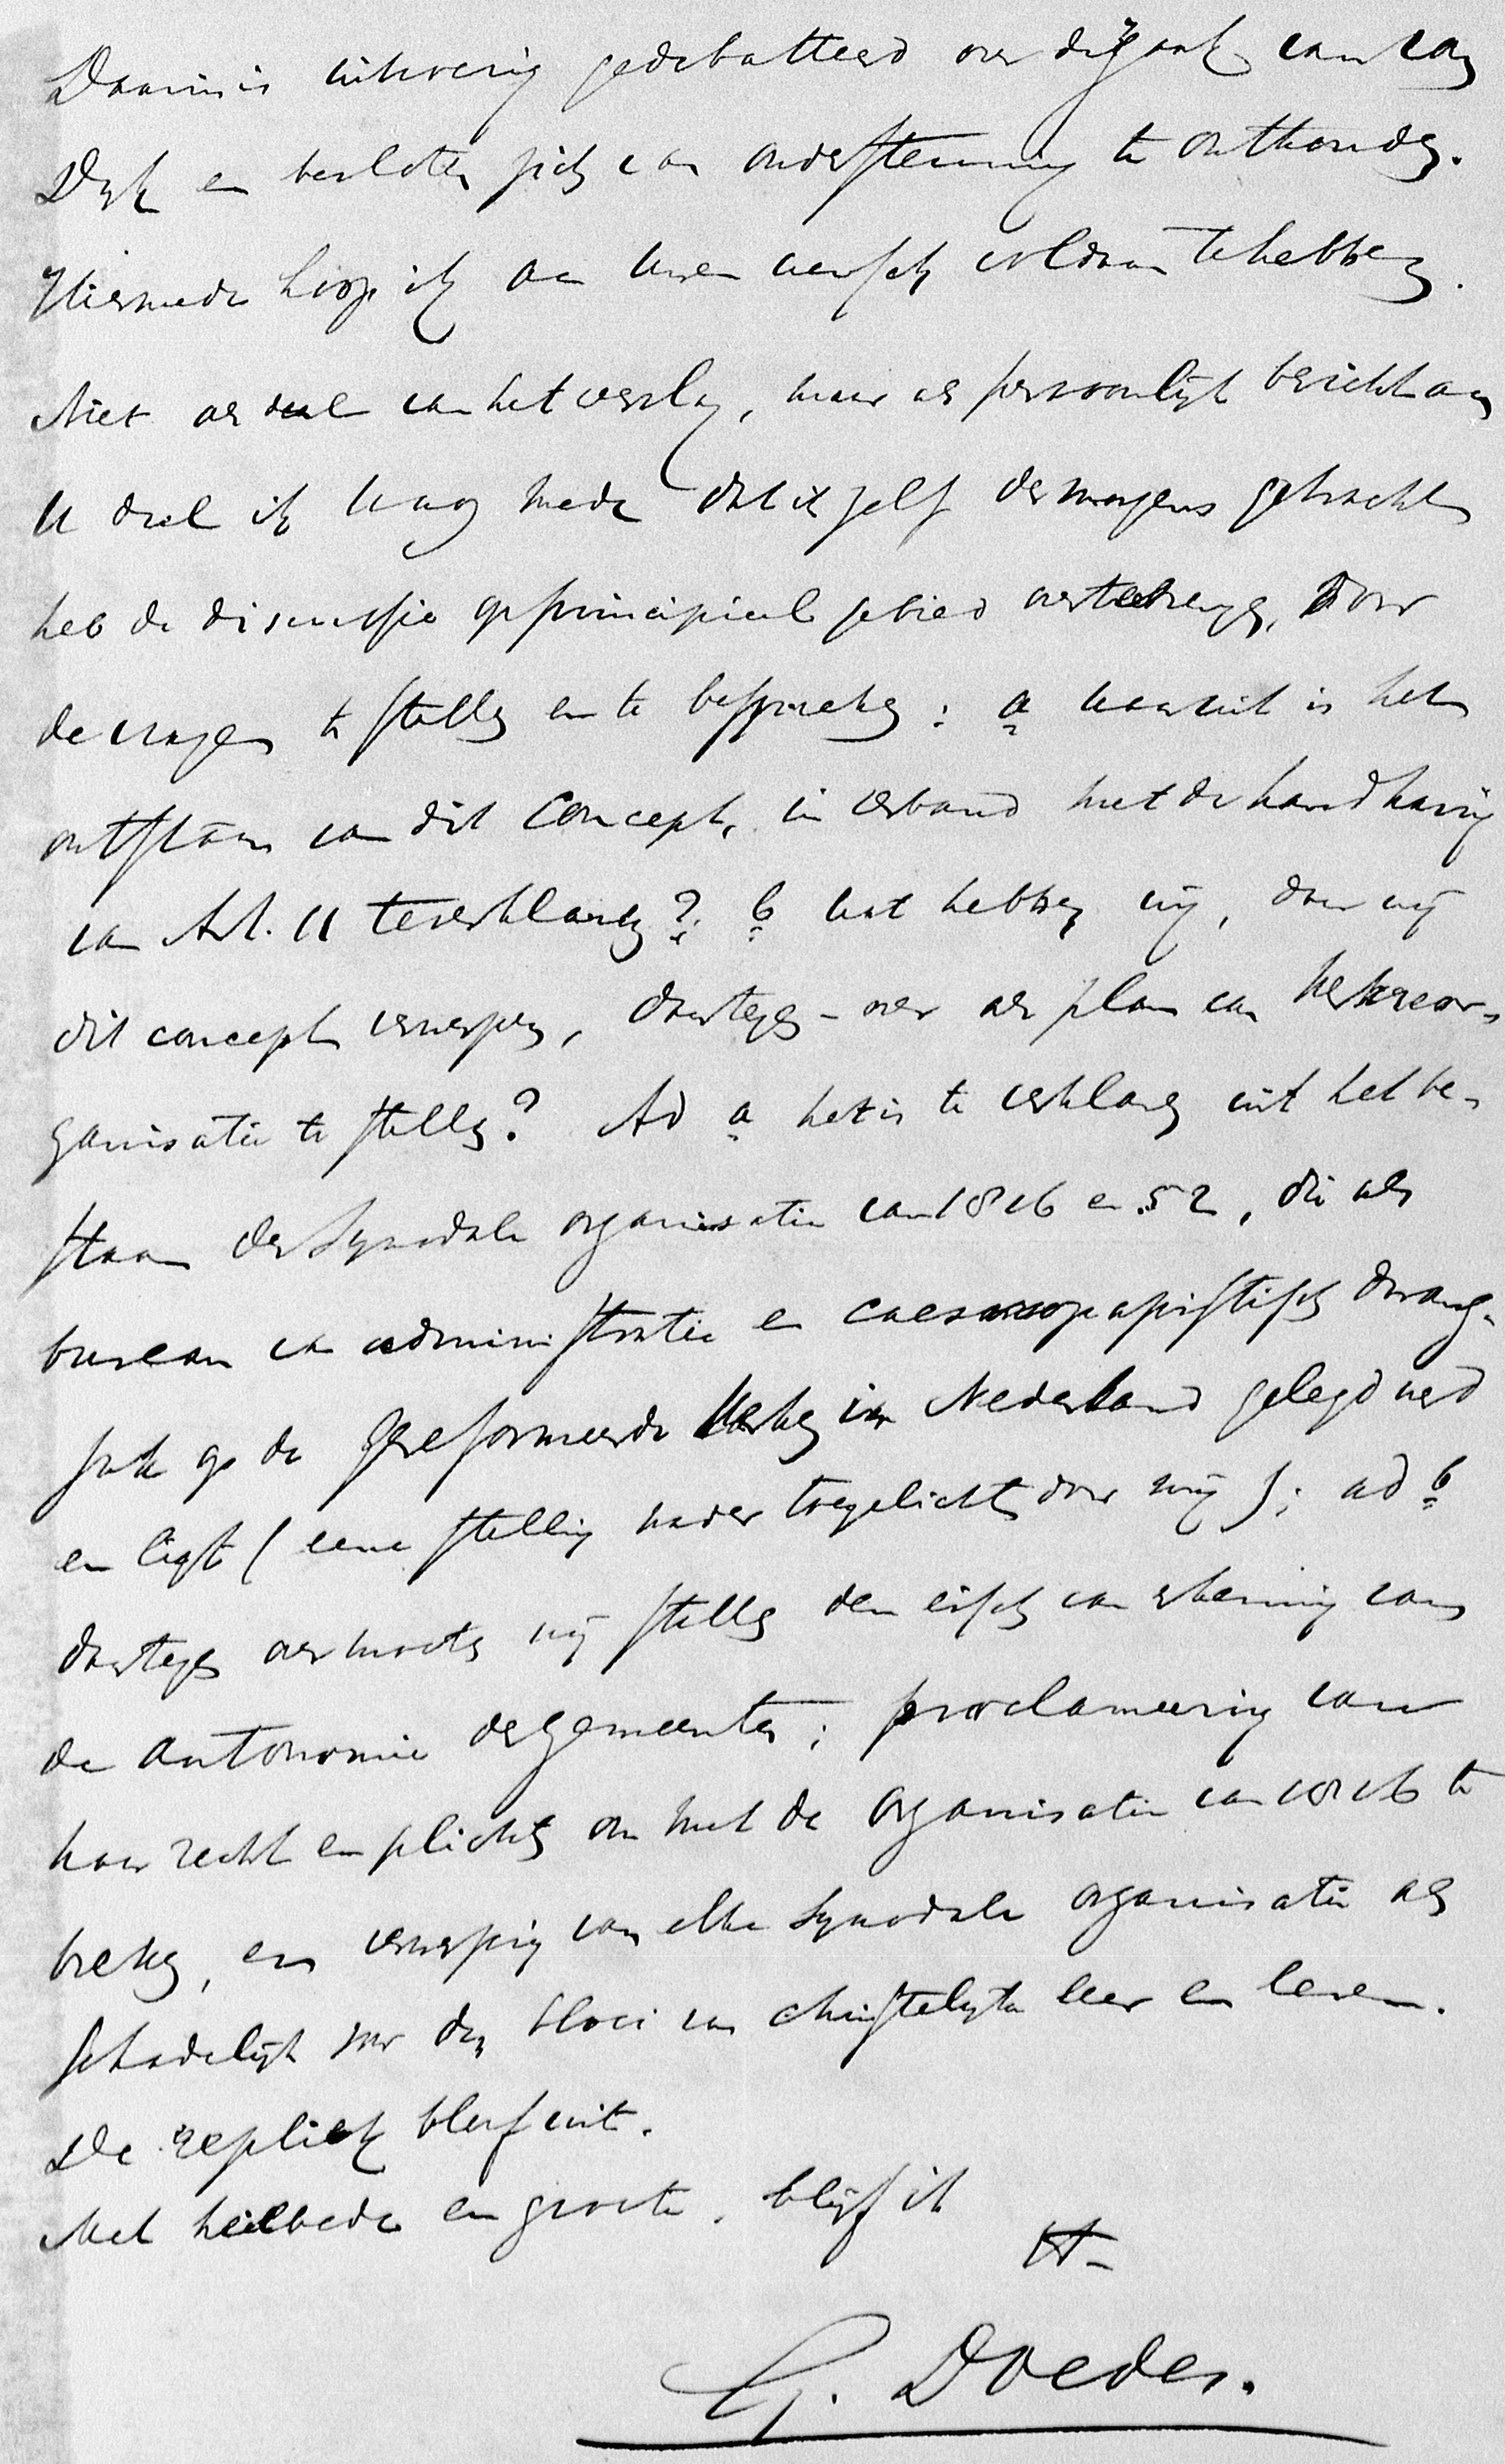 Daarin is uitvoerig gedebatteerd over dit zaak van van
Dyk en besloten zich van ondersteuning te onthouden.
Hiermede hoop ik aan uwen wensch voldaan te hebben.
Niet als deel van het verslag, maar als persoonlijk bericht aan
U deel ik U nog mede dat ik zelf des morgens getracht
heb de discussie op principieel gebied over te brengen, door
de vragen te stellen en te bespreken: a waaruit is het
ontstaan van dit Concept, in verband met de handhaving
van Art. 11 te verklaren?; b wat hebben wij, daar wij
dit concept verwerpen, daartegen-over als plan van kerkreor-
ganisatie te stellen? Ad a het is te verklaren uit het be-
staan der Synodale organisatie van 1816 en 52, die als
bureau van administratie en caesaropapistisch dwang-
juk op de Gereformeerde Kerken in Nederland gelegd werd
en ligt (eene stelling nader toegelicht door mij); ad b
daartegenover moeten wij stellen den eisch van erkenning van
de autonomie der gemeenten; proclameering van
haar recht en plicht om met de organisatie van 1816 te
breken, en verwerping van elke Synodale organisatie als
schadelijk voor den bloei van christelijke leer en leven.
De repliek bleef uit.
Met heilbede en groete, blijf ik
G. Doedes.